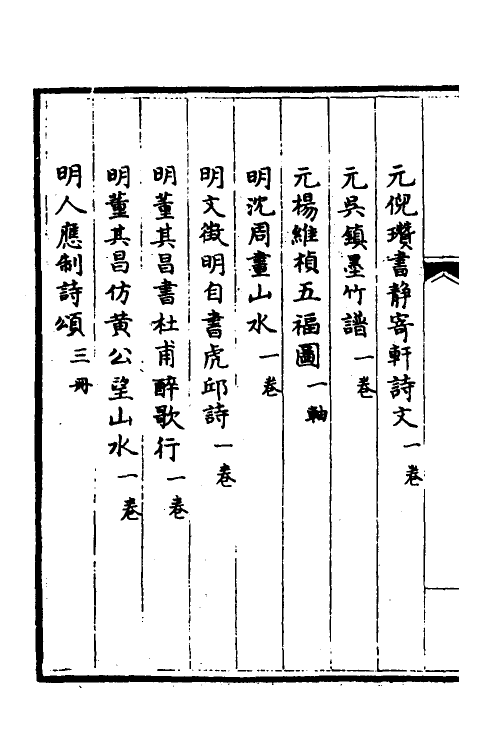 元倪瓚書靜寄軒詩文一卷
元吳鎮墨竹譜一卷
元楊維楨五福圖一軸
明沈周畫山水一卷
明文徵明自書虎邱詩一卷
明董其昌書杜甫醉歌行一卷
明董其昌仿黄公望山水一卷
明人應制詩頌三冊